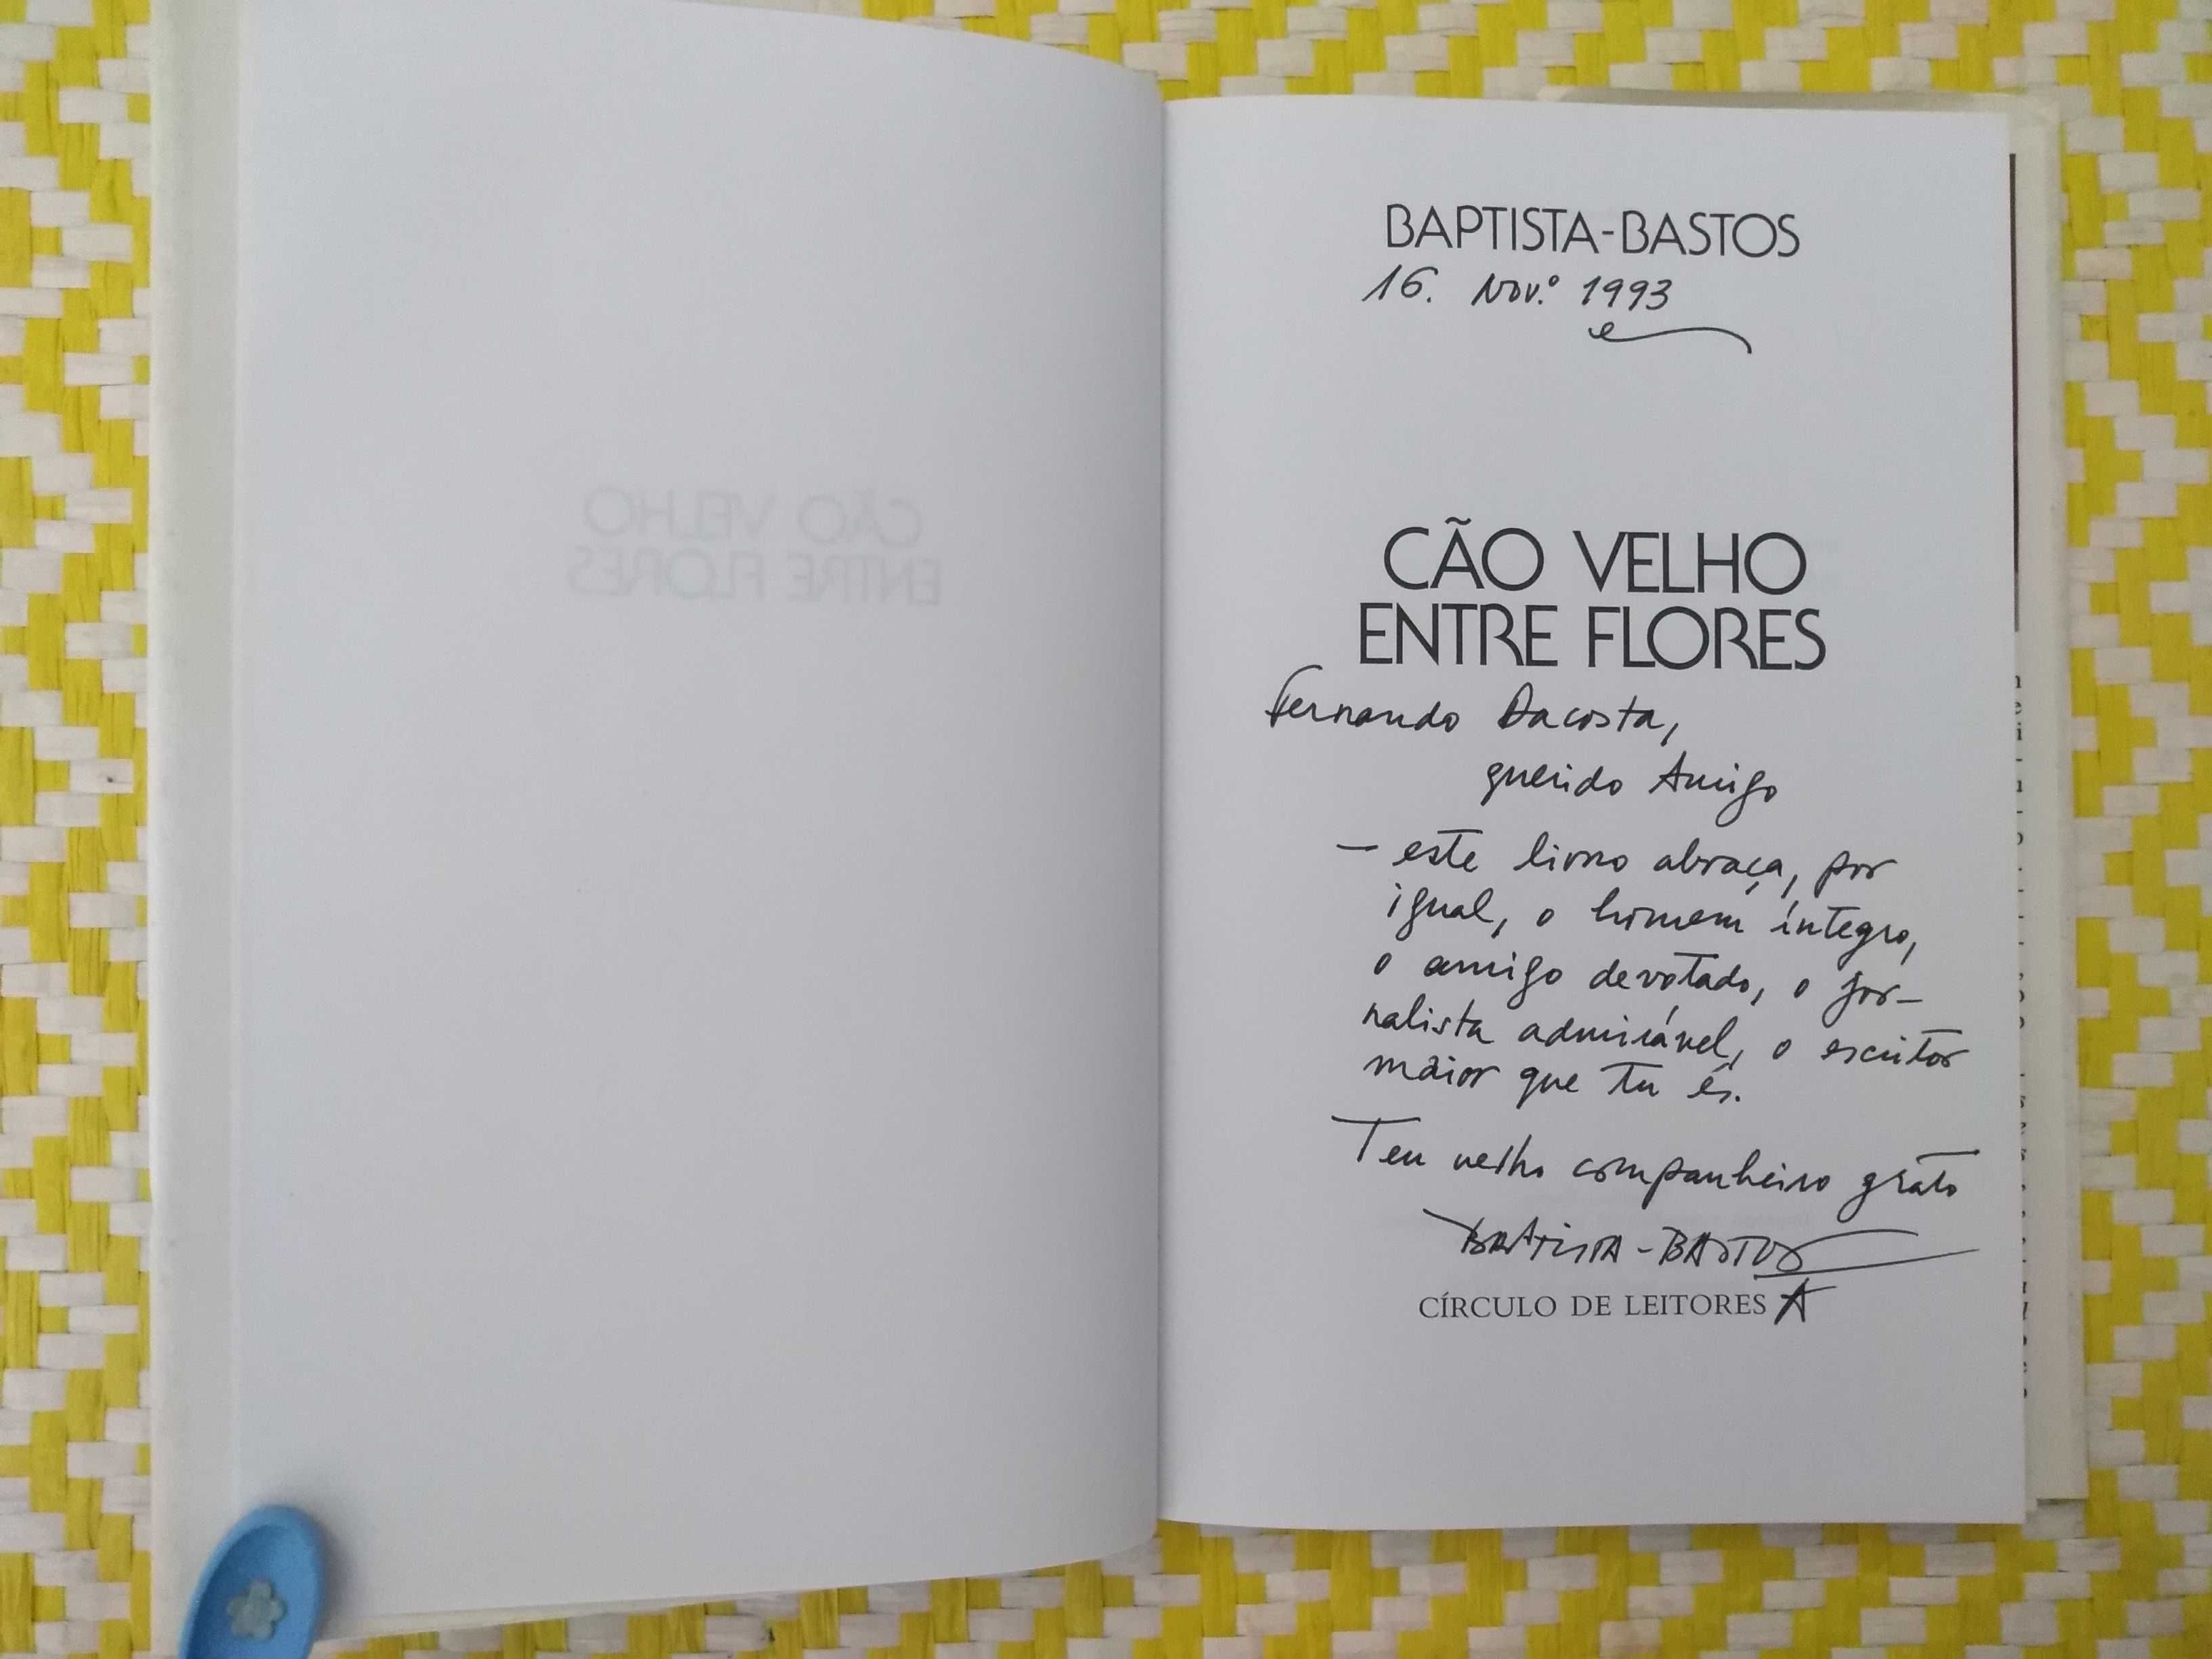 BAPTISTA-BASTOS
16. Nov.º 1993
CÃO VELHO
ENTRE FLORES
Fernando Dacosta,
querido Amigo
— este livro abraça, por
igual, o homem íntegro,
o amigo devotado, o jor-
nalista admirável, o escritor
maior que tu és.
Teu velho companheiro grato
BAPTISTA-BASTOS
CÍRCULO DE LEITORES